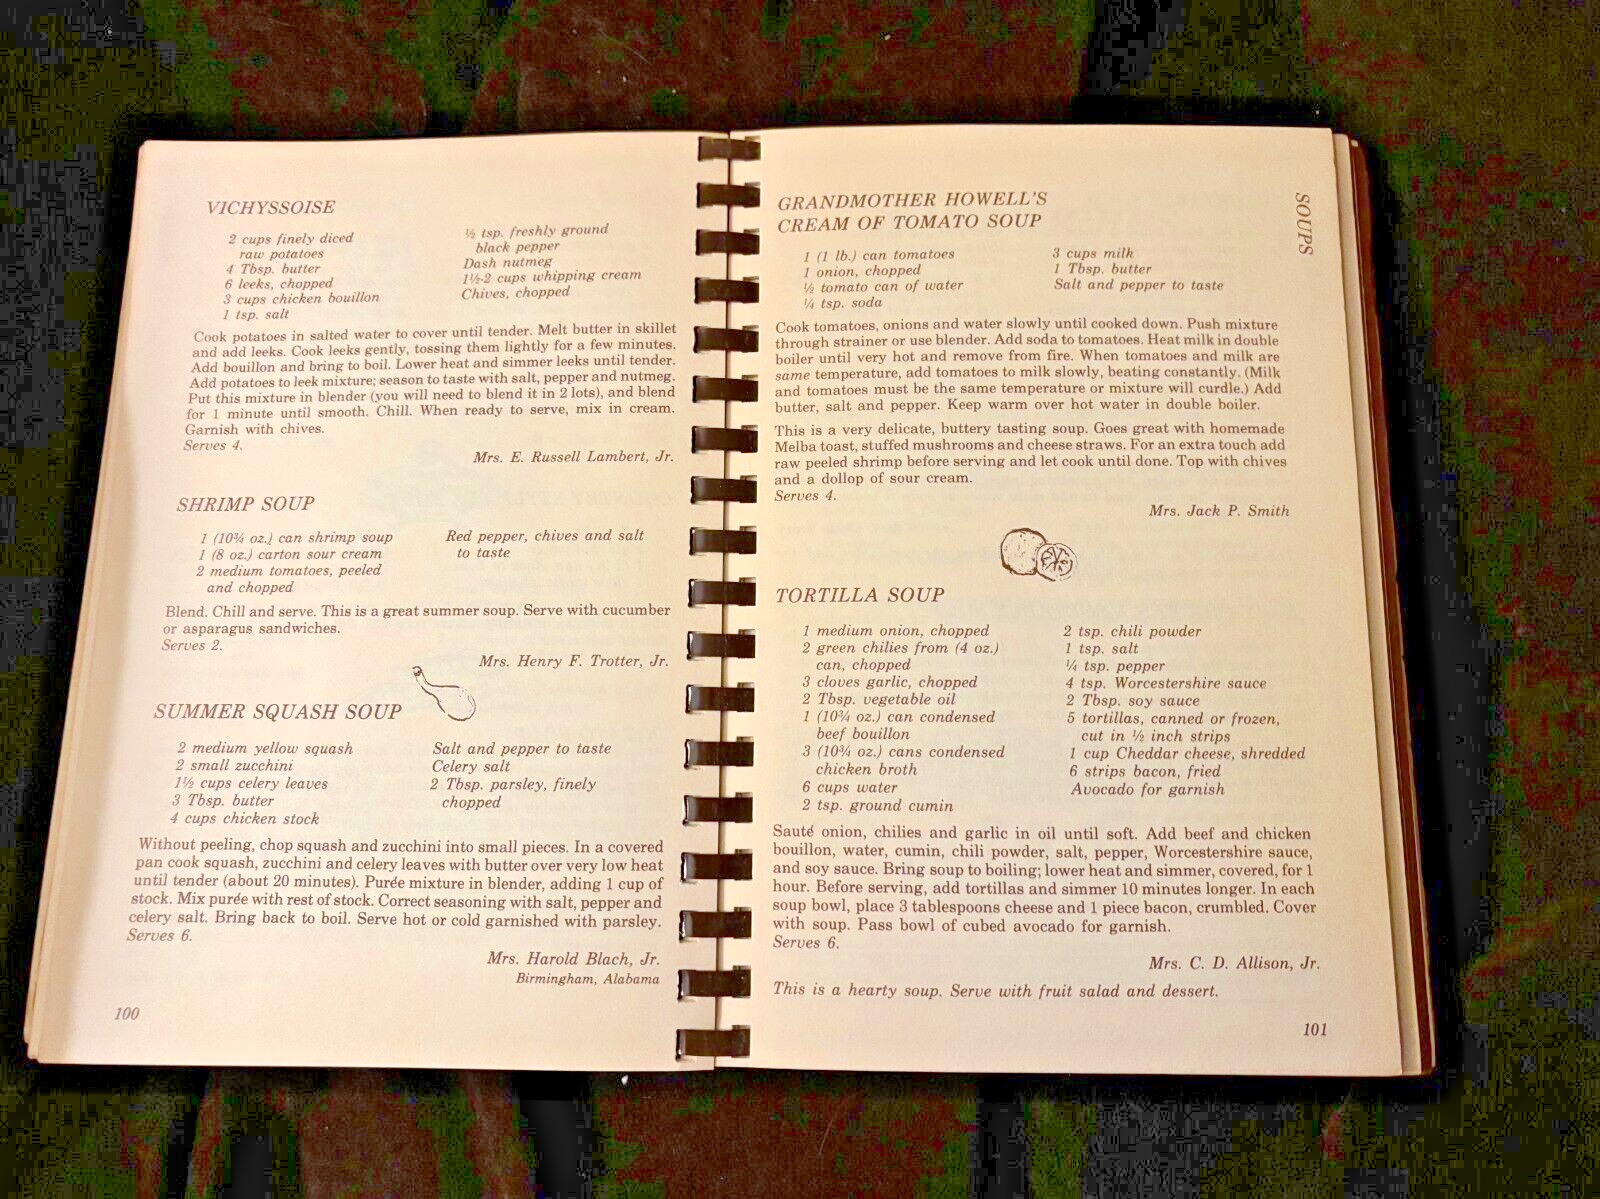 VICHYSSOISE
2 cups finely diced
raw potatoes
4 Tbsp. butter
6 leeks, chopped
3 cups chicken bouillon
1 tsp. salt
½ tsp. freshly ground
black pepper
Dash nutmeg
1½-2 cups whipping cream
Chives, chopped
Cook potatoes in salted water to cover until tender. Melt butter in skillet
and add leeks. Cook leeks gently, tossing them lightly for a few minutes.
Add bouillon and bring to boil. Lower heat and simmer leeks until tender.
Add potatoes to leek mixture; season to taste with salt, pepper and nutmeg.
Put this mixture in blender (you will need to blend it in 2 lots), and blend
for 1 minute until smooth. Chill. When ready to serve, mix in cream.
Garnish with chives.
Serves 4.
Mrs. E. Russell Lambert, Jr.
SHRIMP SOUP
1 (10¾ oz.) can shrimp soup
1 (8 oz.) carton sour cream
2 medium tomatoes, peeled
and chopped
Red pepper, chives and salt
to taste
Blend. Chill and serve. This is a great summer soup. Serve with cucumber
or asparagus sandwiches.
Serves 2.
Mrs. Henry F. Trotter, Jr.
SUMMER SQUASH SOUP
2 medium yellow squash
2 small zucchini
1½ cups celery leaves
3 Tbsp. butter
4 cups chicken stock
Salt and pepper to taste
Celery salt
2 Tbsp. parsley, finely
chopped
Without peeling, chop squash and zucchini into small pieces. In a covered
pan cook squash, zucchini and celery leaves with butter over very low heat
until tender (about 20 minutes). Purée mixture in blender, adding 1 cup of
stock. Mix purée with rest of stock. Correct seasoning with salt, pepper and
celery salt. Bring back to boil. Serve hot or cold garnished with parsley.
Serves 6.
Mrs. Harold Blach, Jr.
Birmingham, Alabama
100
GRANDMOTHER HOWELL'S
CREAM OF TOMATO SOUP
1 (1 lb.) can tomatoes
1 onion, chopped
½ tomato can of water
¼ tsp. soda
3 cups milk
1 Tbsp. butter
Salt and pepper to taste
Cook tomatoes, onions and water slowly until cooked down. Push mixture
through strainer or use blender. Add soda to tomatoes. Heat milk in double
boiler until very hot and remove from fire. When tomatoes and milk are
same temperature, add tomatoes to milk slowly, beating constantly. (Milk
and tomatoes must be the same temperature or mixture will curdle.) Add
butter, salt and pepper. Keep warm over hot water in double boiler.
This is a very delicate, buttery tasting soup. Goes great with homemade
Melba toast, stuffed mushrooms and cheese straws. For an extra touch add
raw peeled shrimp before serving and let cook until done. Top with chives
and a dollop of sour cream.
Serves 4.
Mrs. Jack P. Smith
TORTILLA SOUP
1 medium onion, chopped
2 green chilies from (4 oz.)
can, chopped
3 cloves garlic, chopped
2 Tbsp. vegetable oil
1 (10¾ oz.) can condensed
beef bouillon
3 (10¾ oz.) cans condensed
chicken broth
6 cups water
2 tsp. ground cumin
2 tsp. chili powder
1 tsp. salt
¼ tsp. pepper
4 tsp. Worcestershire sauce
2 Tbsp. soy sauce
5 tortillas, canned or frozen,
cut in ½ inch strips
1 cup Cheddar cheese, shredded
6 strips bacon, fried
Avocado for garnish
Sauté onion, chilies and garlic in oil until soft. Add beef and chicken
bouillon, water, cumin, chili powder, salt, pepper, Worcestershire sauce,
and soy sauce. Bring soup to boiling; lower heat and simmer, covered, for 1
hour. Before serving, add tortillas and simmer 10 minutes longer. In each
soup bowl, place 3 tablespoons cheese and 1 piece bacon, crumbled. Cover
with soup. Pass bowl of cubed avocado for garnish.
Serves 6.
Mrs. C. D. Allison, Jr.
This is a hearty soup. Serve with fruit salad and dessert.
101
SOUPS